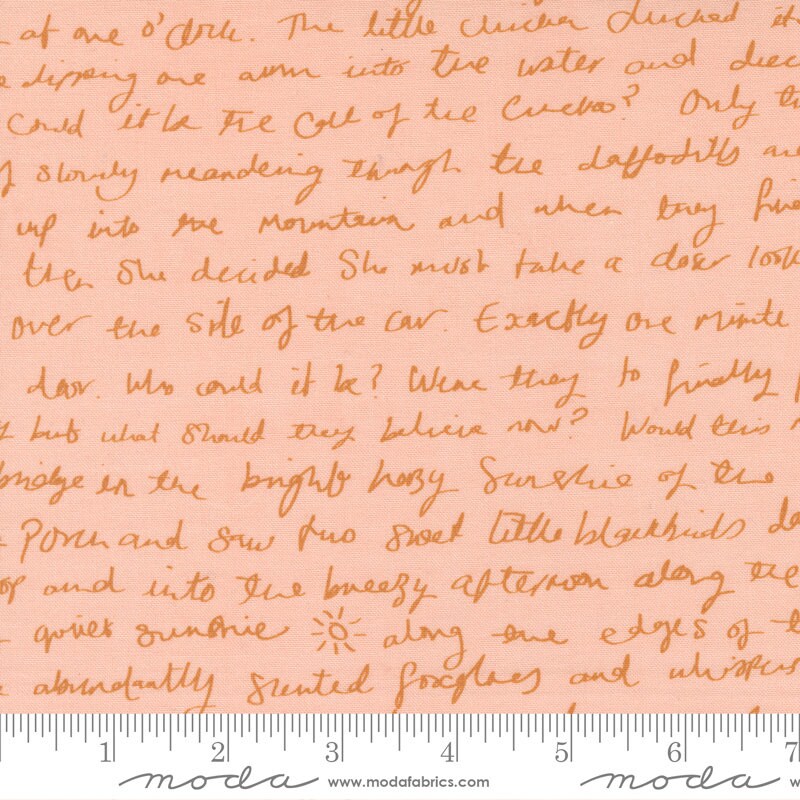 at one o'clock. The little chicken clucked it
dipping one arm into the water and
Could it be the call of the Cuckoo? Only th
slowly meandering through the daffodills an
up into the mountain and when they fin
then she decided she must take a closer look
over the side of the car. Exactly one minute
door. Who could it be? Were they to finally
but what should they believe now? Would this
bridge in the bright hazy sunshine of the
Porch and saw two sweet little blackbirds
and into the breezy afternoon along the
quiet sunshine along the edges of t
abundantly scented foxgloves and whispers
1 2 3 4 5 6 7
moda www.modafabrics.com moda w